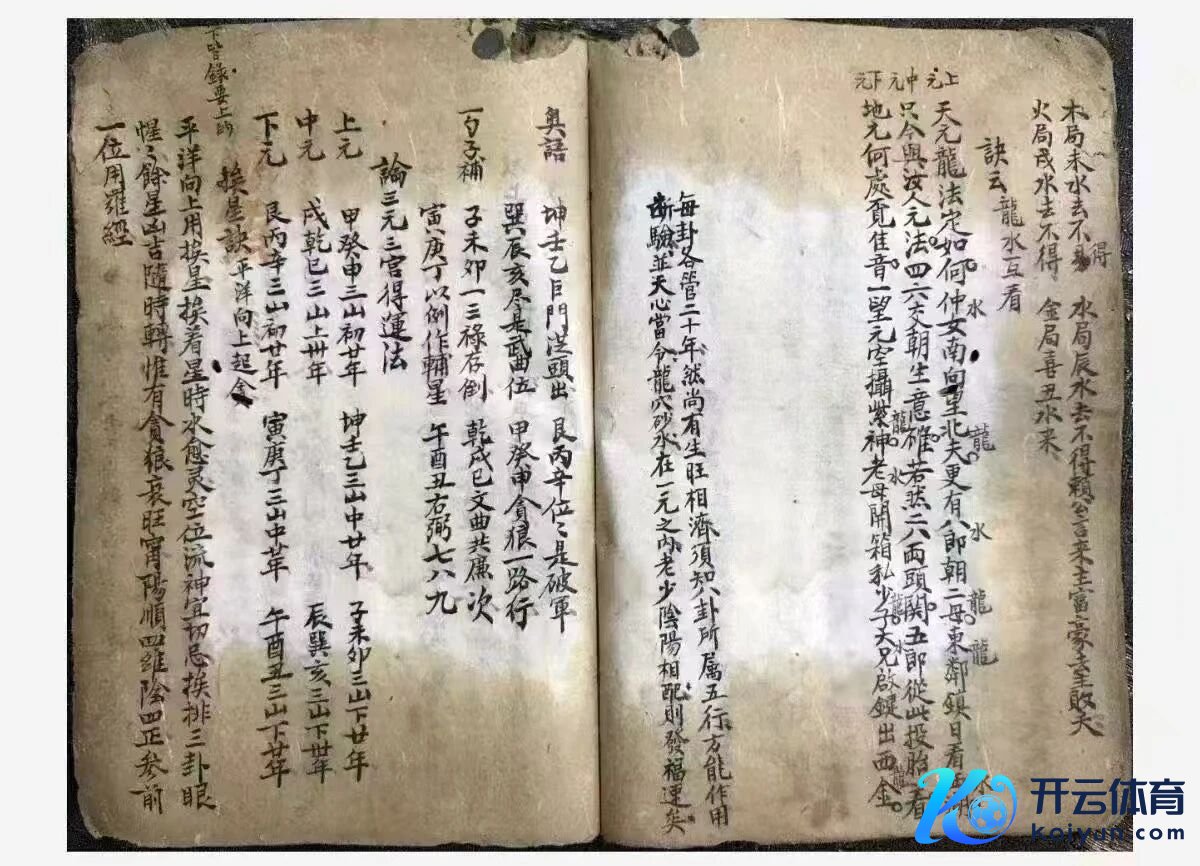 木局未水去不得 水局辰水去不得賴公言來主富豪去主敗天
火局戌水去不得 金局喜丑水来
訣云龍水互看
上元 中元 下元
天元龍法定如何仲女南向望北夫更有八郎朝二母東鄰鎮日看西
只今與汝人元法四六交朝生意確若然二六兩頭関五郎從此投胎看
地元何處覔佳音一望元空攝紫神老母開箱私少子大兄啟鍵出西金
水 龍 水 龍 龍 水
龍 水 龍 水 龍
每卦各管二十年然尚有生旺相濟須知八卦所属五行方能作用
斷驗並天心當令龍穴砂水在一元之內老少陰陽相配則發福運矣
奥語 坤壬乙巨門從頭出 艮丙辛位〻是破軍
巽辰亥尽是武曲位 甲癸申貪狼一路行
一勺子補 子未卯一三禄存倒 乾戌巳文曲共廉次
寅庚丁以倒作輔星 午酉丑右弼七八九
論三元三宫得運法
上元 甲癸申三山初廿年 坤壬乙三山中廿年 子未卯三山下廿年
中元 戌乾巳三山上卅年 辰巽亥三山下卅年
下元 艮丙辛三山初廿年 寅庚丁三山中廿年 午酉丑三山下廿年
下皆錄要上的
挨星訣平洋向上起貪
平洋向上用挨星挨着星時水愈灵空位流神宜切忌挨排三卦眼
惺〻餘星凶吉隨時轉惟有貪狼衰旺宵陽順四維陰四正参前
一位用羅經
开云体育
kaiyun.com